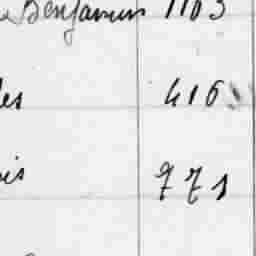 Benjamin 1103
les 416
is 771